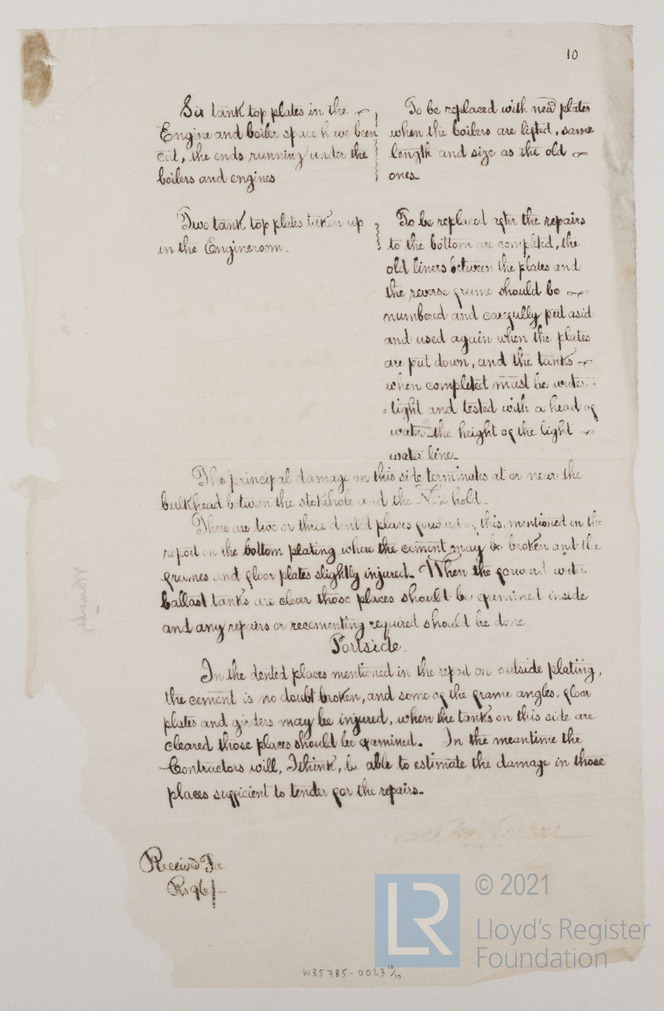 10
Six tank top plates in the
Engine and boiler space have been
cut, the ends running under the
boilers and engines
To be replaced with new plates
when the boilers are lifted, same
length and size as the old
ones.
Two tank top plates taken up
in the Engineroom.
To be replaced after the repairs
to the bottom are completed, the
old liners between the plates and
the reverse frame should be
numbered and carefully put asid
and used again when the plates
are put down, and the tanks
when completed must be water-
-tight and tested with a head of
water the height of the light
water line.
The principal damage on this side terminates at or near the
bulkhead between the stokehole and the No 2 hold.
There are two or three dented places forward of this, mentioned in the
report on the bottom plating where the cement may be broken and the
frames and floor plates slightly injured. When the forward water
ballast tanks are clear those places should be examined inside
and any repairs or recementing required should be done
Portside.
In the dented places mentioned in the report on outside plating,
the cement is no doubt broken, and some of the frame angles, floor
plates and girders may be injured, when the tanks on this side are
cleared those places should be examined. In the meantime the
Contractors will, I think, be able to estimate the damage in those
places sufficient to tender for the repairs.
Received Fee
Rs 96/-
© 2021
LR
Lloyd's Register
Foundation
W35785-0023 10/10